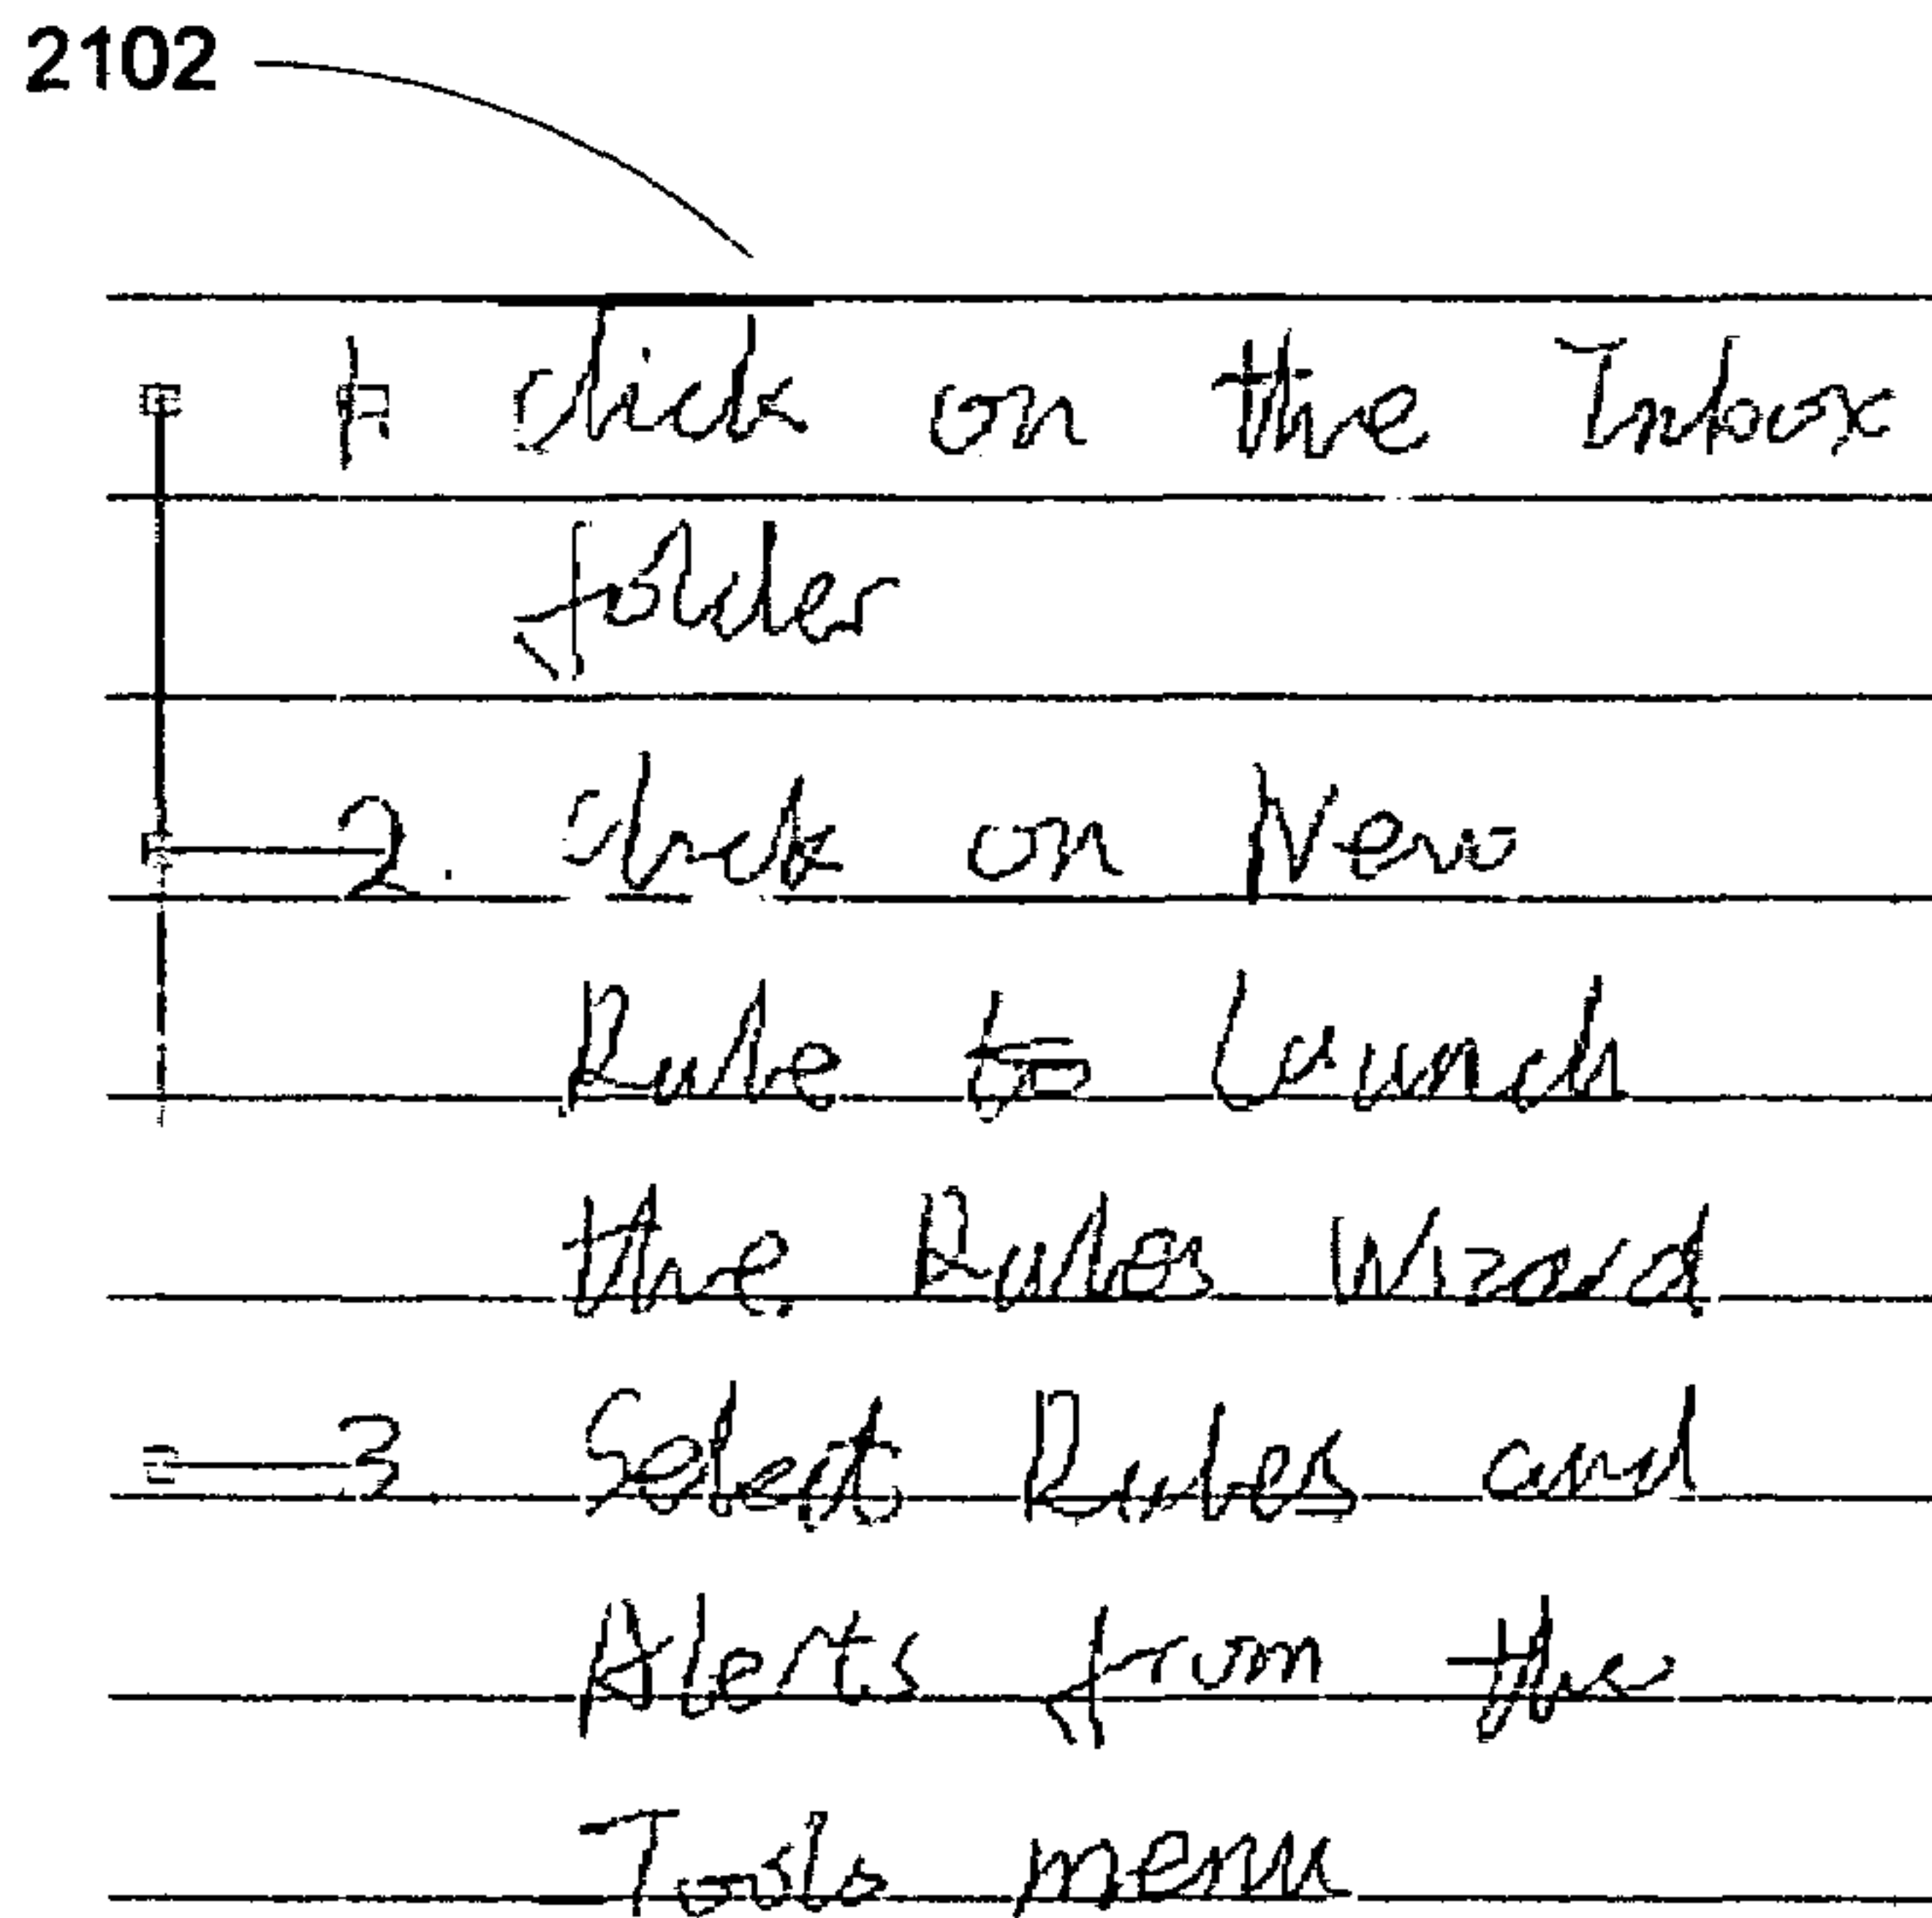 2102
1. Click on the Inbox
folder
2. Click on New
Rule to launch
the Rules Wizard
3. Select Rules and
Alerts from the
Tools menu